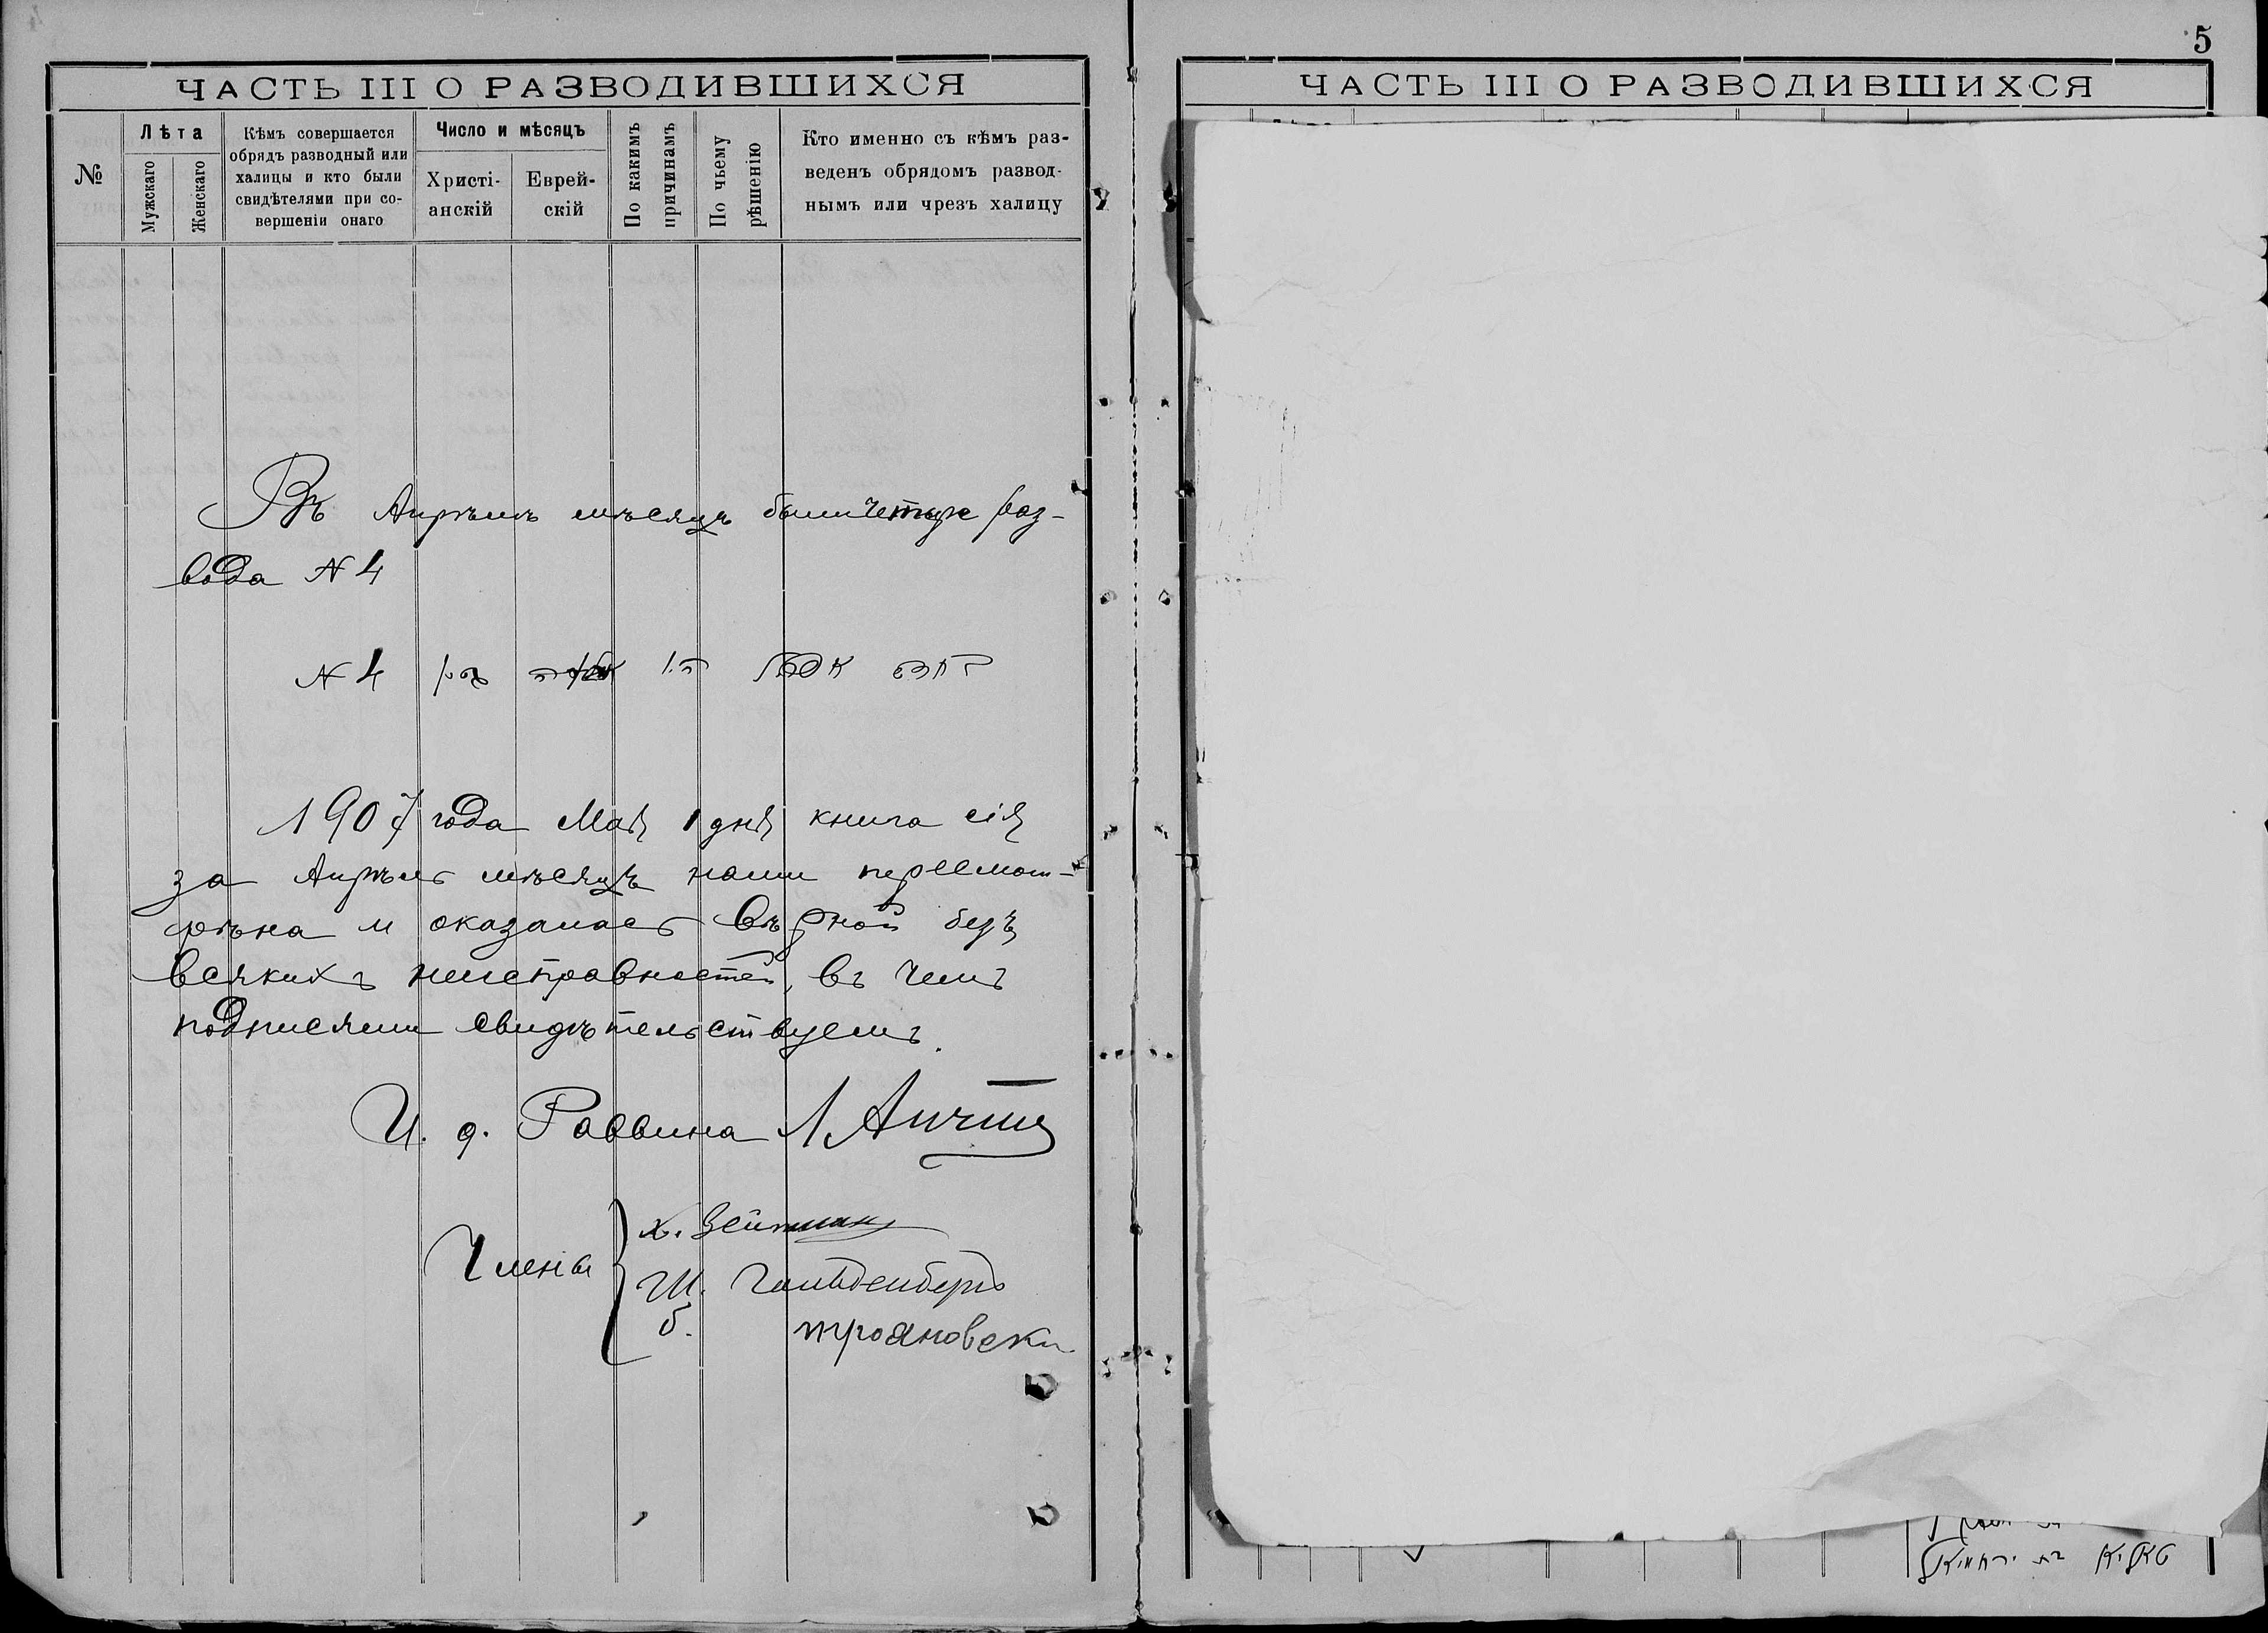 5
ЧАСТЬ III О РАЗВОДИВШИХСЯ
№
Лѣта
Мужскаго
Женскаго
Кѣмъ совершается
обрядъ разводный или
халицы и кто были
свидѣтелями при со-
вершеніи онаго
Число и мѣсяцъ
Христі-
анскій
Еврей-
скій
По какимъ
причинамъ
По чьему
рѣшенію
Кто именно съ кѣмъ раз-
веденъ обрядомъ развод-
нымъ или чрезъ халицу
Въ Апрѣлѣ мѣсяцѣ были четыре раз-
вода N 4
N 4
1907 года Мая 1 дня книга сія
за Апрѣль мѣсяцъ нами пересмот-
рѣна и оказалась вѣрной безъ
всякихъ неисправностей, въ чемъ
подписями свидѣтельствуемъ.
И. д. Раввина Л.
Члены
х. Зейтман
Ш. Гольденбергъ
б. трояновски
ЧАСТЬ III О РАЗВОДИВШИХСЯ